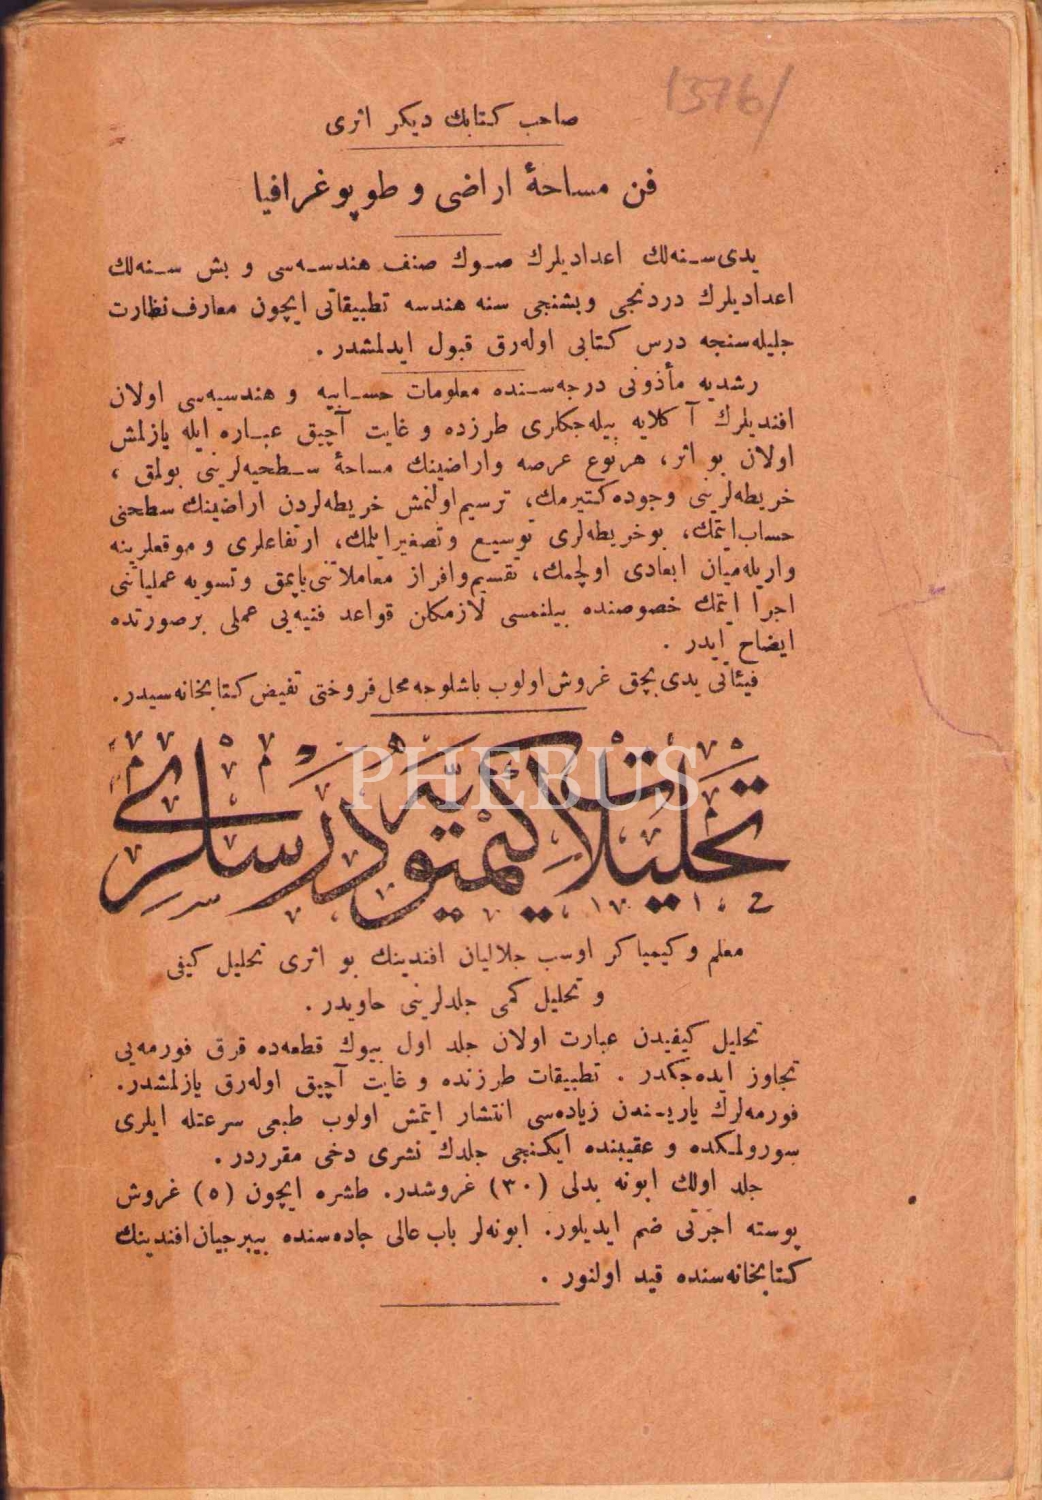 1376/
صاحب كتابك ديكر اثرى
فن مساحهٔ اراضى و طوپوغرافيا
يدى‌سنه‌لك اعداديلرك صوك صنف هندسه‌سى و بش سنه‌لك
اعداديلرك دردنجى وبشنجى سنه هندسه تطبيقاتى ايچون معارف نظارت
جليله‌سنجه درس كتابى اوله‌رق قبول ايدلمشدر .
رشديه مأذونى درجه‌سنده معلومات حسابيه و هندسيه‌سى اولان
افنديلرك آ كلايه بيله‌جكلرى طرزده و غايت آچيق عباره ايله يازلمش
اولان بو اثر، هرنوع عرصه واراضينك مساحهٔ سطحيه‌لرينى بولمق ،
خريطه‌لرينى وجوده‌كتيرمك، ترسيم‌اولنمش خريطه‌لردن اراضينك سطحنى
حساب‌ايتمك، بوخريطه‌لرى توسيع وتصغيرايلمك، ارتفاعلرى و موقعلرينه
واريله‌ميان ابعادى اولچمك، تقسيم‌وافراز معاملاتنى‌ياپمق وتسويه عملياتنى
اجرا ايتمك خصوصنده بيلنمسى لازمكلن قواعد فنيه‌يى عملى برصورتده
ايضاح ايدر .
فيئاتى يدى بچق غروش‌اولوب باشلوجه محل‌فروختى تفيض كتابخانه‌سيدر.
PHEBUS
تحليلات كيميويه درسلرى
معلم وكيمياكر اوسب جلاليان افندينك بو اثرى تحليل كيفى
و تحليل كمى جلدلرينى حاويدر .
تحليل كيفيدن عبارت اولان جلد اول بيوك قطعه‌ده قرق فورمه‌يى
تجاوز ايده‌جكدر . تطبيقات طرزنده و غايت آچيق اوله‌رق يازلمشدر.
فورمه‌لرك ياريسندن زياده‌سى انتشار ايتمش اولوب طبعى سرعتله ايلرى
سورولمكده و عقيبنده ايكنجى جلدك نشرى دخى مقرردر .
جلد اولك ابونه بدلى (٣٠) غروشدر. طشره ايچون (٥) غروش
پوسته اجرتى ضم ايديلور. ابونه‌لر باب عالى جاده‌سنده بيبرجيان‌افندينك
كتابخانه‌سنده قيد اولنور .